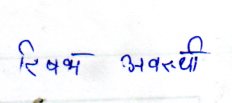 रिषभ अवस्थी